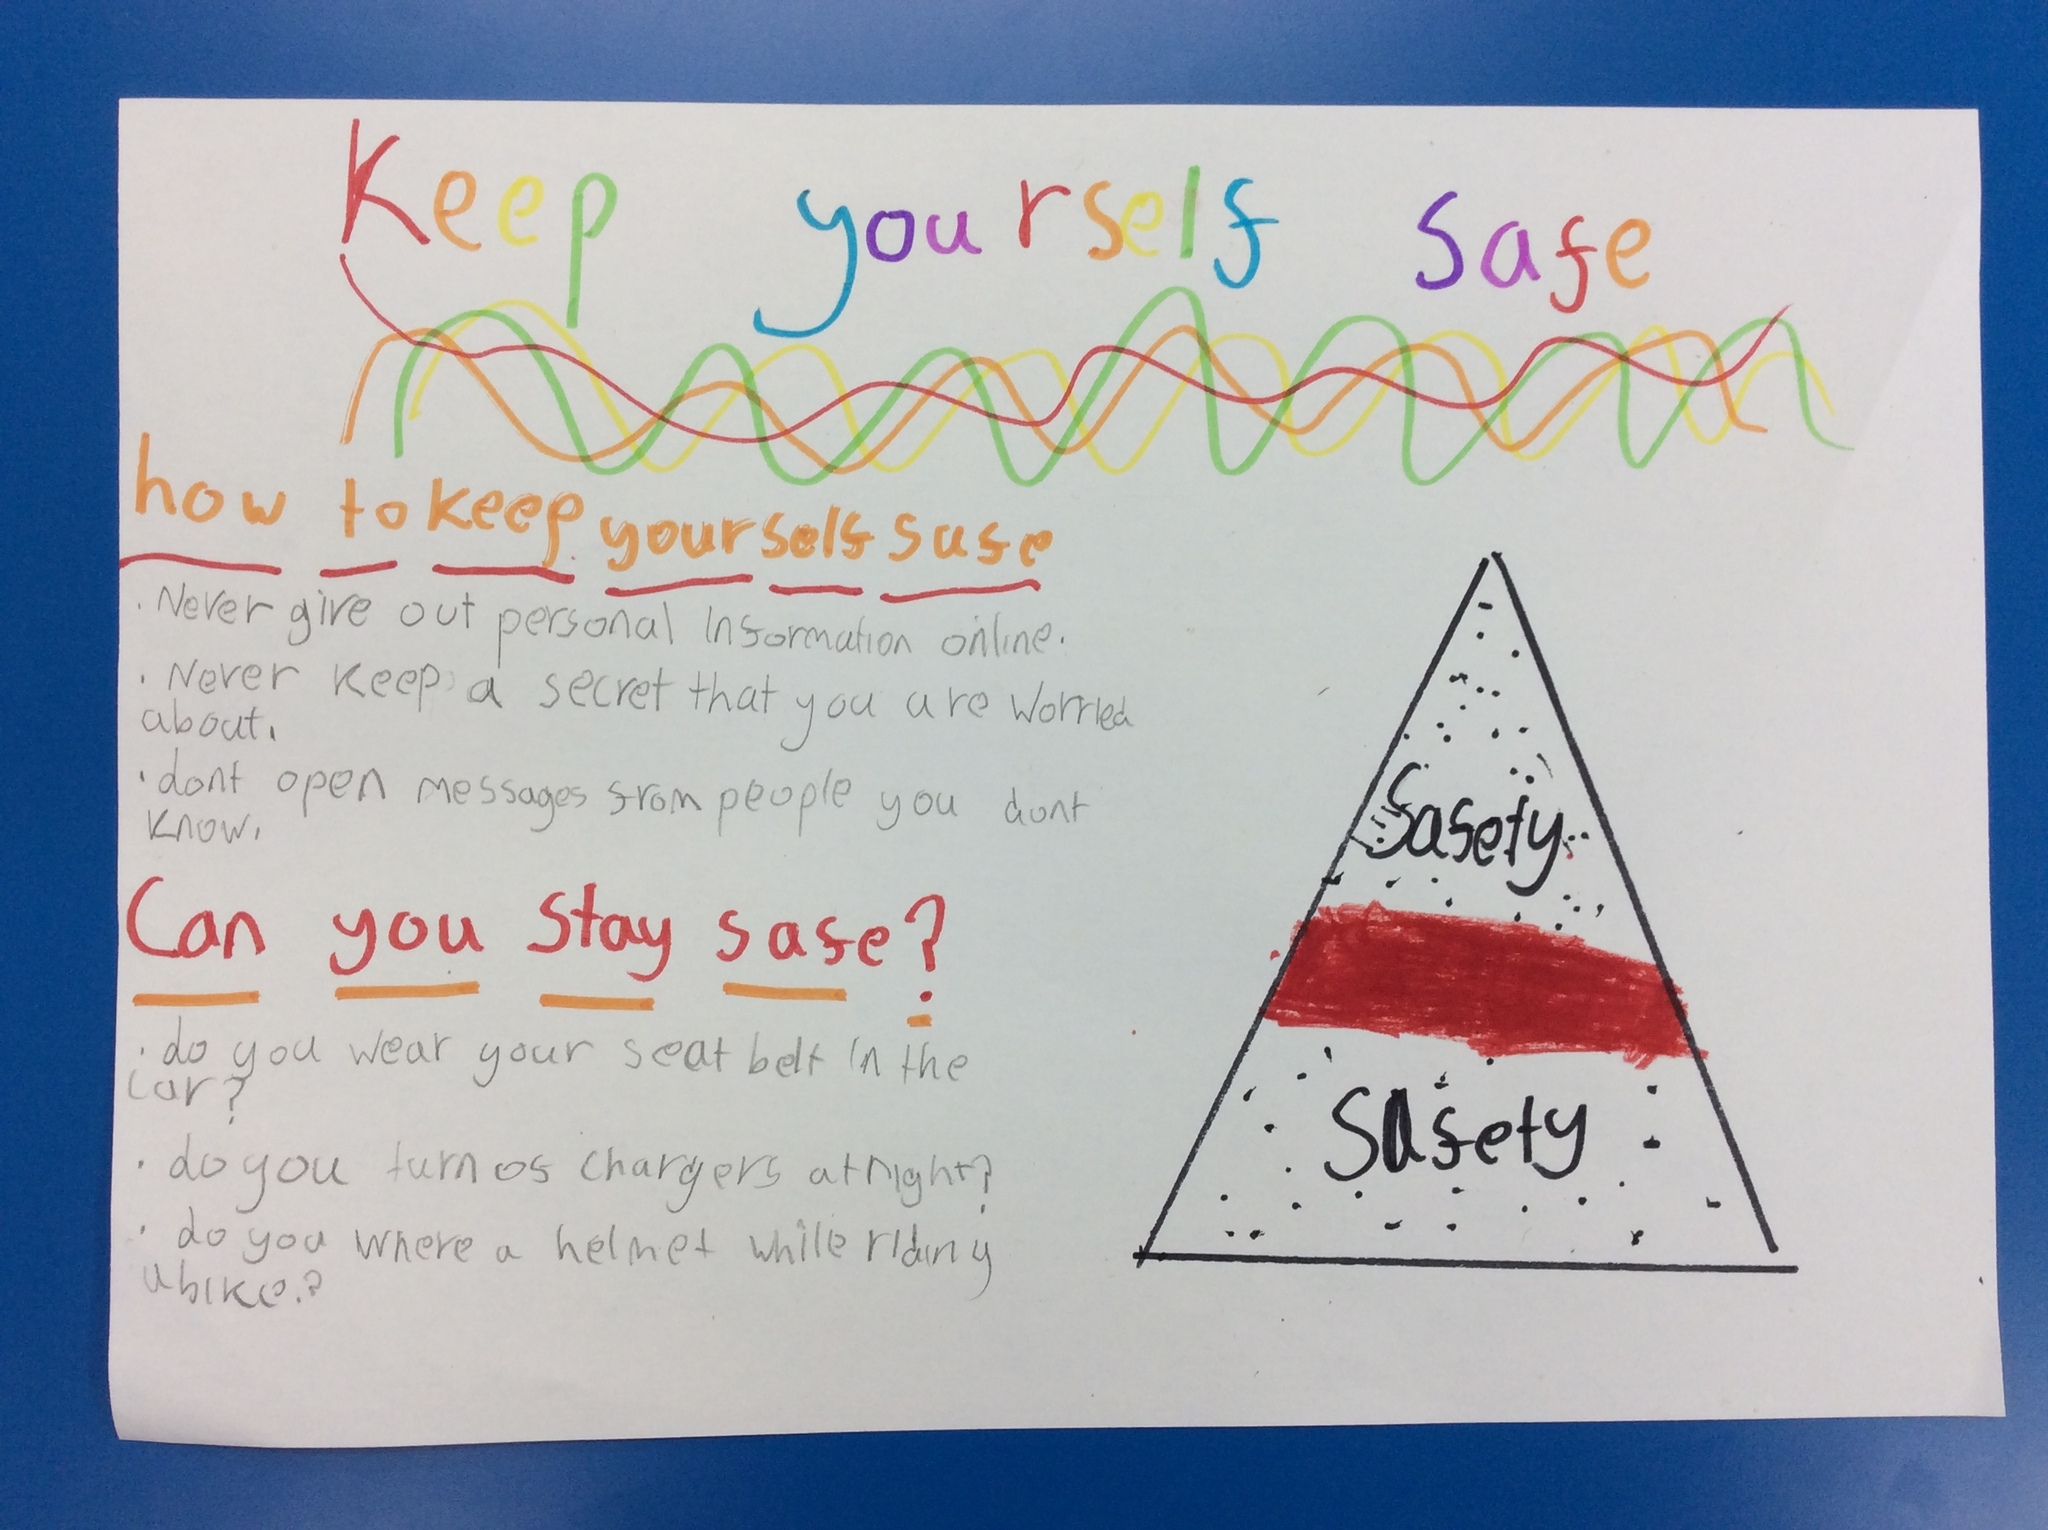 Keep yourself safe
how to keep yourself safe
· Never give out personal information online.
· Never keep a secret that you are worried
about.
· dont open messages from people you dont
know.
Can you stay safe?
· do you wear your seat belt in the
car?
· do you turn of chargers at night?
· do you where a helmet while riding
a bike?
Safety
Safety